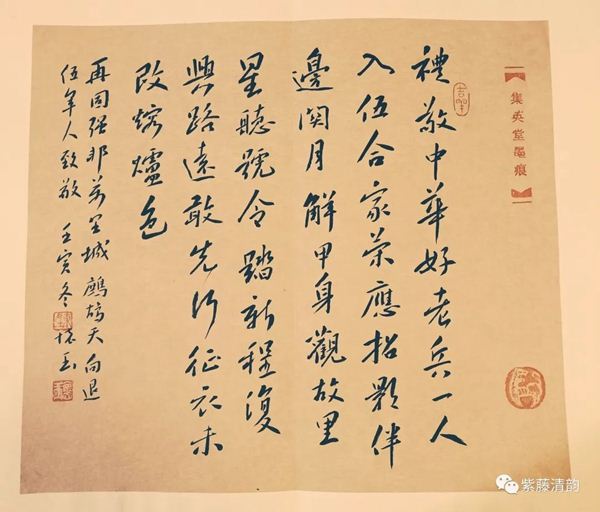 集英堂墨痕
禮敬中華好老兵一人
入伍合家荣應招影伴
邊関月解甲身觀故里
星聽號令踏新程復
興路遠敢先行征衣未
改熔爐色
再固强邦萬里城 鹧鸪天向退
伍軍人致敬 壬寅冬 怀玉
紫藤清韵